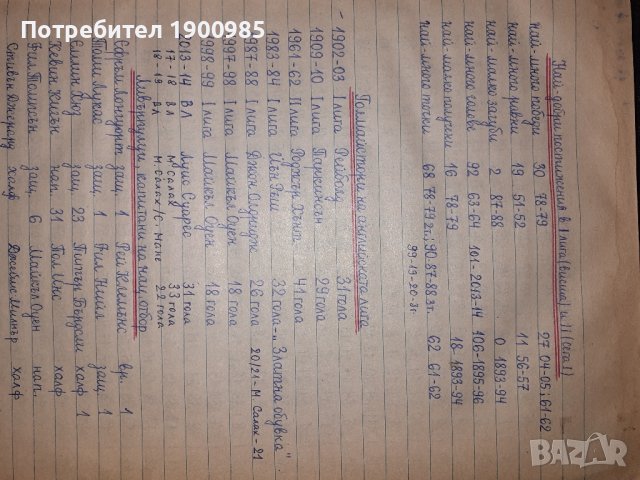 Потребител 1900985
Най-добри постижения в I лига (висша) и II (сега I)
най-много победи 30 78-79 27 04-05; 61-62
най-много равни 19 51-52 11 56-57
най-малко загуби 2 87-88 0 1893-94
най-много голове 92 63-64 101-2013-14 106-1895-96
най-малко получени 16 78-79 18-1893-94
най-много точки 68 78-79 2т.; 90-87-88 3т. 62 61-62
99-19-20-3т
Голмайстори на английската лига
1902-03 I лига Рейболд 31 гола
1909-10 I лига Паркинсън 29 гола
1961-62 II лига Роджър Хънт 41 гола
1983-84 I лига Иън Ръш 32 гола - "Златна обувка"
1987-88 I лига Джон Олдридж 26 гола 20/21-М Салах-21
1997-98 I лига Майкъл Оуен 18 гола
1998-99 I лига Майкъл Оуен 18 гола
2013-14 ВЛ Луис Суарес 31 гола
17-18 ВЛ М Салах 33 гола
18-19 ВЛ М. Салах/С. Мане 22 гола
Ливърпулци, капитани на нац. отбор
Ефрем Лонгуорт защ. 1 Рей Клемънс вр. 1
Томи Лукас защ. 1 Фил Нийл защ. 1
Емлин Хюз защ. 23 Питър Бърдсли халф 1
Кевин Кигън нап. 31 Пол Инс халф
Фил Томпсън защ. 6 Майкъл Оуен нап.
Стивън Джерард халф. Джеймс Милнър халф
bazar.bg